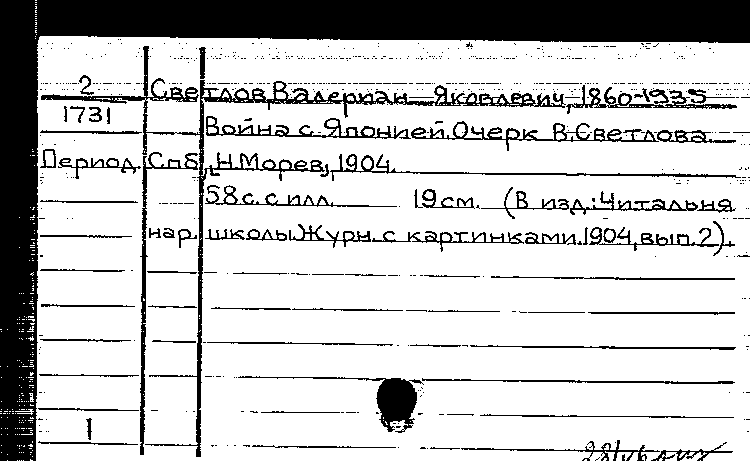 2 Светлов, Валериан Яковлевич, 1860-1935
1731
Война с Японией. Очерк В. Светлова.
Период. Спб, "Н. Морев", 1904.
58 с. с илл. 19 см. (В изд.: Читальня
нар. школы. Журн. с картинками. 1904, вып. 2).
1